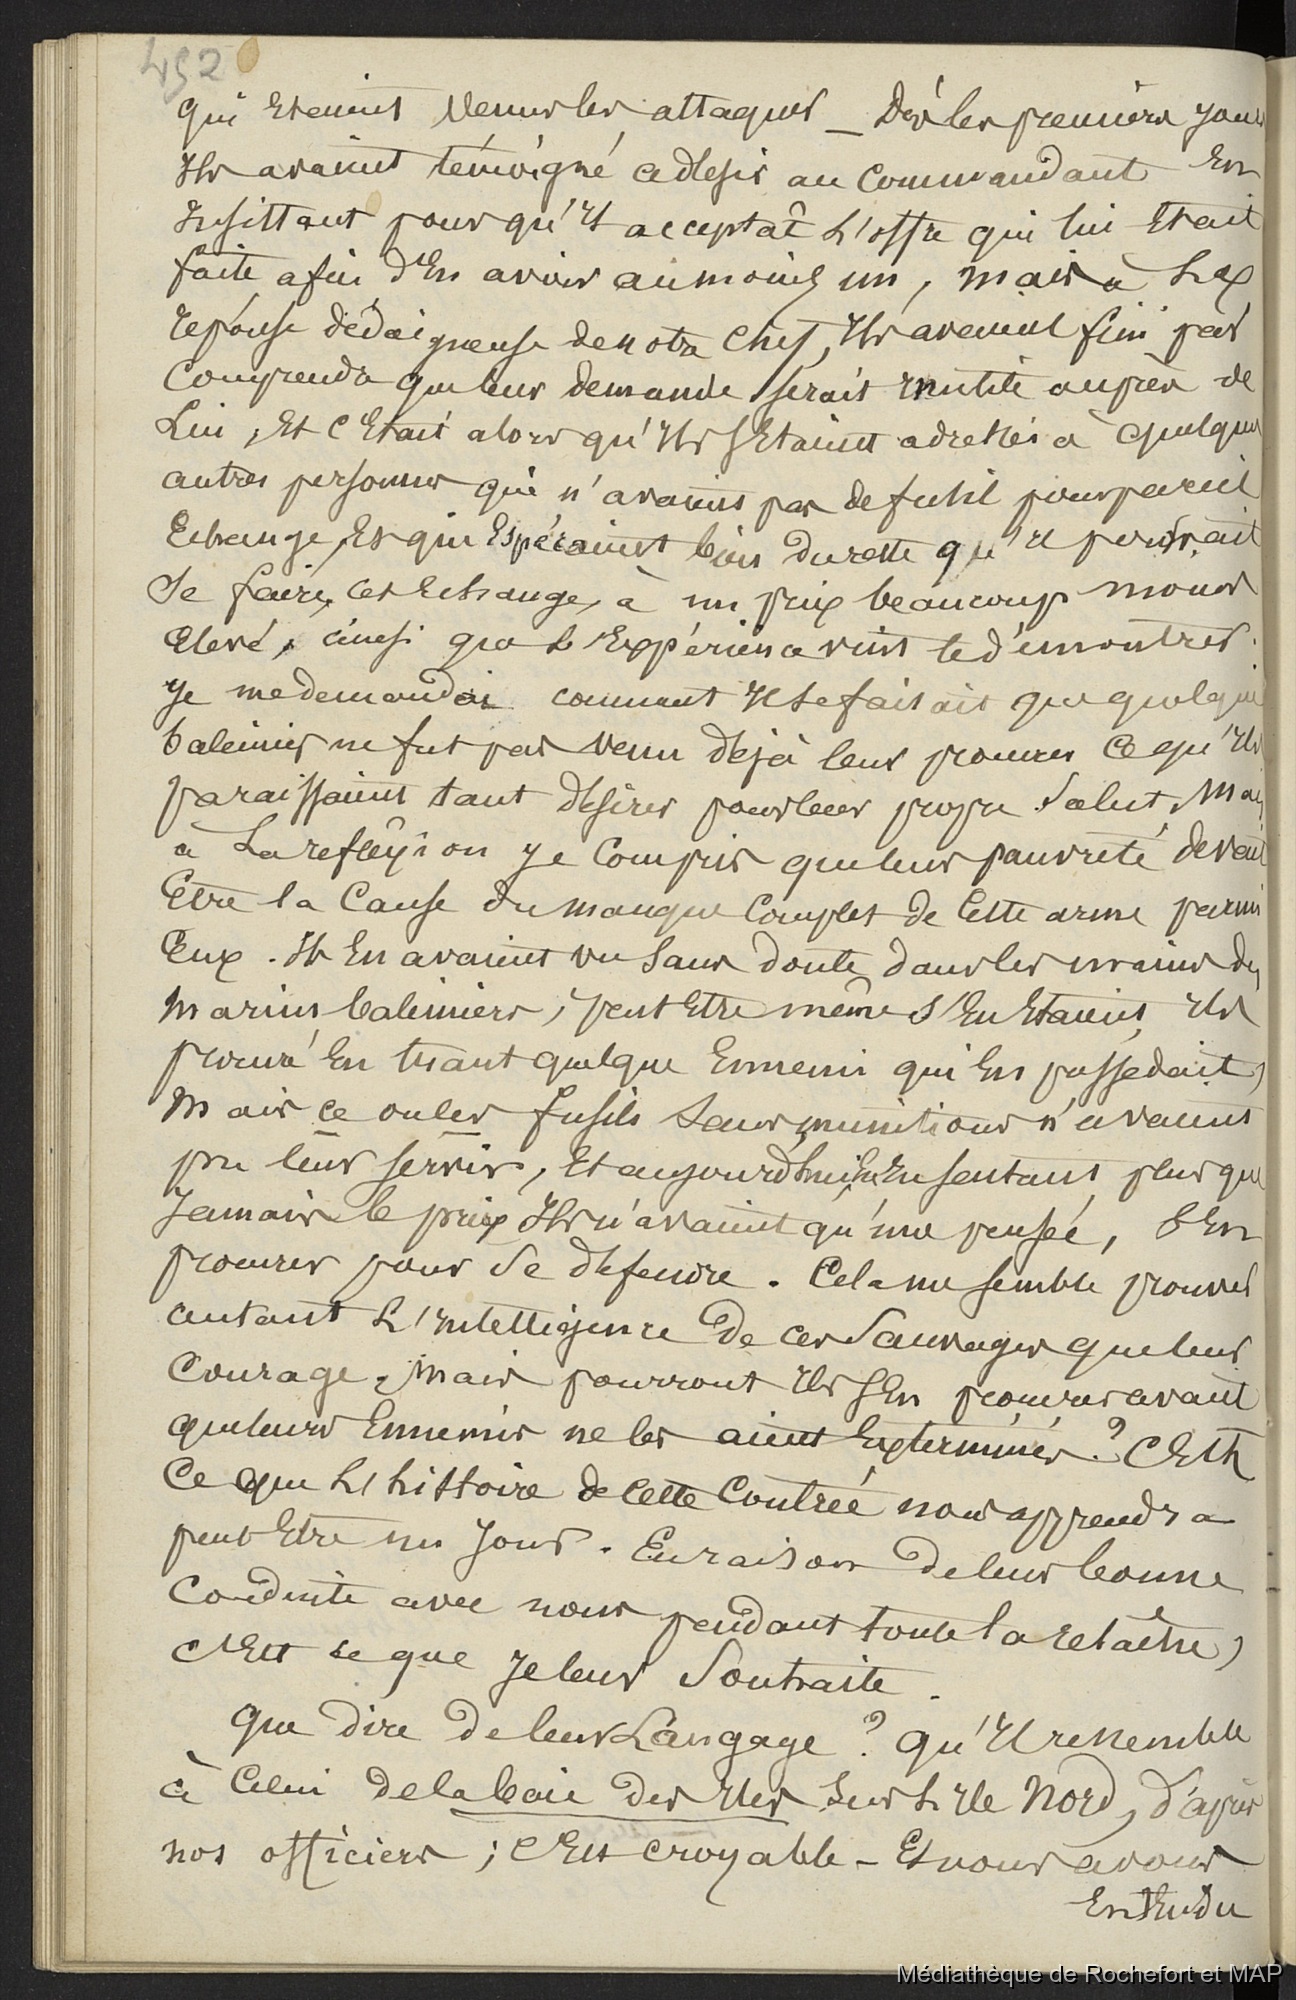 492
qui Etaient venus les attaquer _ Dès les premiers jours
Ils avaient témoigné ce desir au Commandant En
Insistant pour qu'Il acceptât L'offre qui lui Etait
faite afin d'En avoir au moins un, mais à La
réponse dédaigneuse de notre Chef, Ils avaient fini par
Comprendre que leur demande serait Inutile auprès de
Lui, Et C'Etait alors qu'Ils s'Etaient adressés à quelques
autres personnes qui n'avaient pas de fusil pour pareil
Echange, Et qui Espéraient bien du reste qu'Il pourrait
Se faire, cet Echange, à un prix beaucoup moins
Elevé, ainsi que L'Expérience vint le démontrer.
Je me demandai comment Il se faisait que quelque
baleinier ne fut pas venu déjà leur procurer Ce qu'Ils
paraissaient tant désirer pour leur propre Salut, Mais
à La reflexion je Compris que leur pauvreté devait
Etre la Cause du manque Complet de Cette arme parmi
Eux. Ils En avaient vu Sans doute dans les mains des
Marins baleiniers, peut Etre même S'En Etaient Ils
procuré En tuant quelque Ennemi qui En possedait,
Mais ce ou les fusils Sans munitions n'avaient
pu leur servir, Et aujourd'hui En sentant plus que
Jamais le prix Ils n'avaient qu'une pensée, S'En
procurer pour Se défendre. Cela me semble prouver
autant L'Intelligence De ces Sauvages que leur
Courage. Mais pourront Ils S'En procurer avant
que leurs Ennemis ne les aient Exterminés? C'Est
Ce que L'histoire de Cette Contrée nous apprendra
peut Etre un Jour. En raison De leur bonne
Conduite avec nous pendant toute la relache,
C'Est ce que Je leur Souhaite.
Que dire De leur Langage? Qu'Il ressemble
à Celui de la baie des Iles Sur L'Ile Nord, d'après
nos officiers; C'Est croyable – Et nous avons
Entendu
Médiathèque de Rochefort et MAP